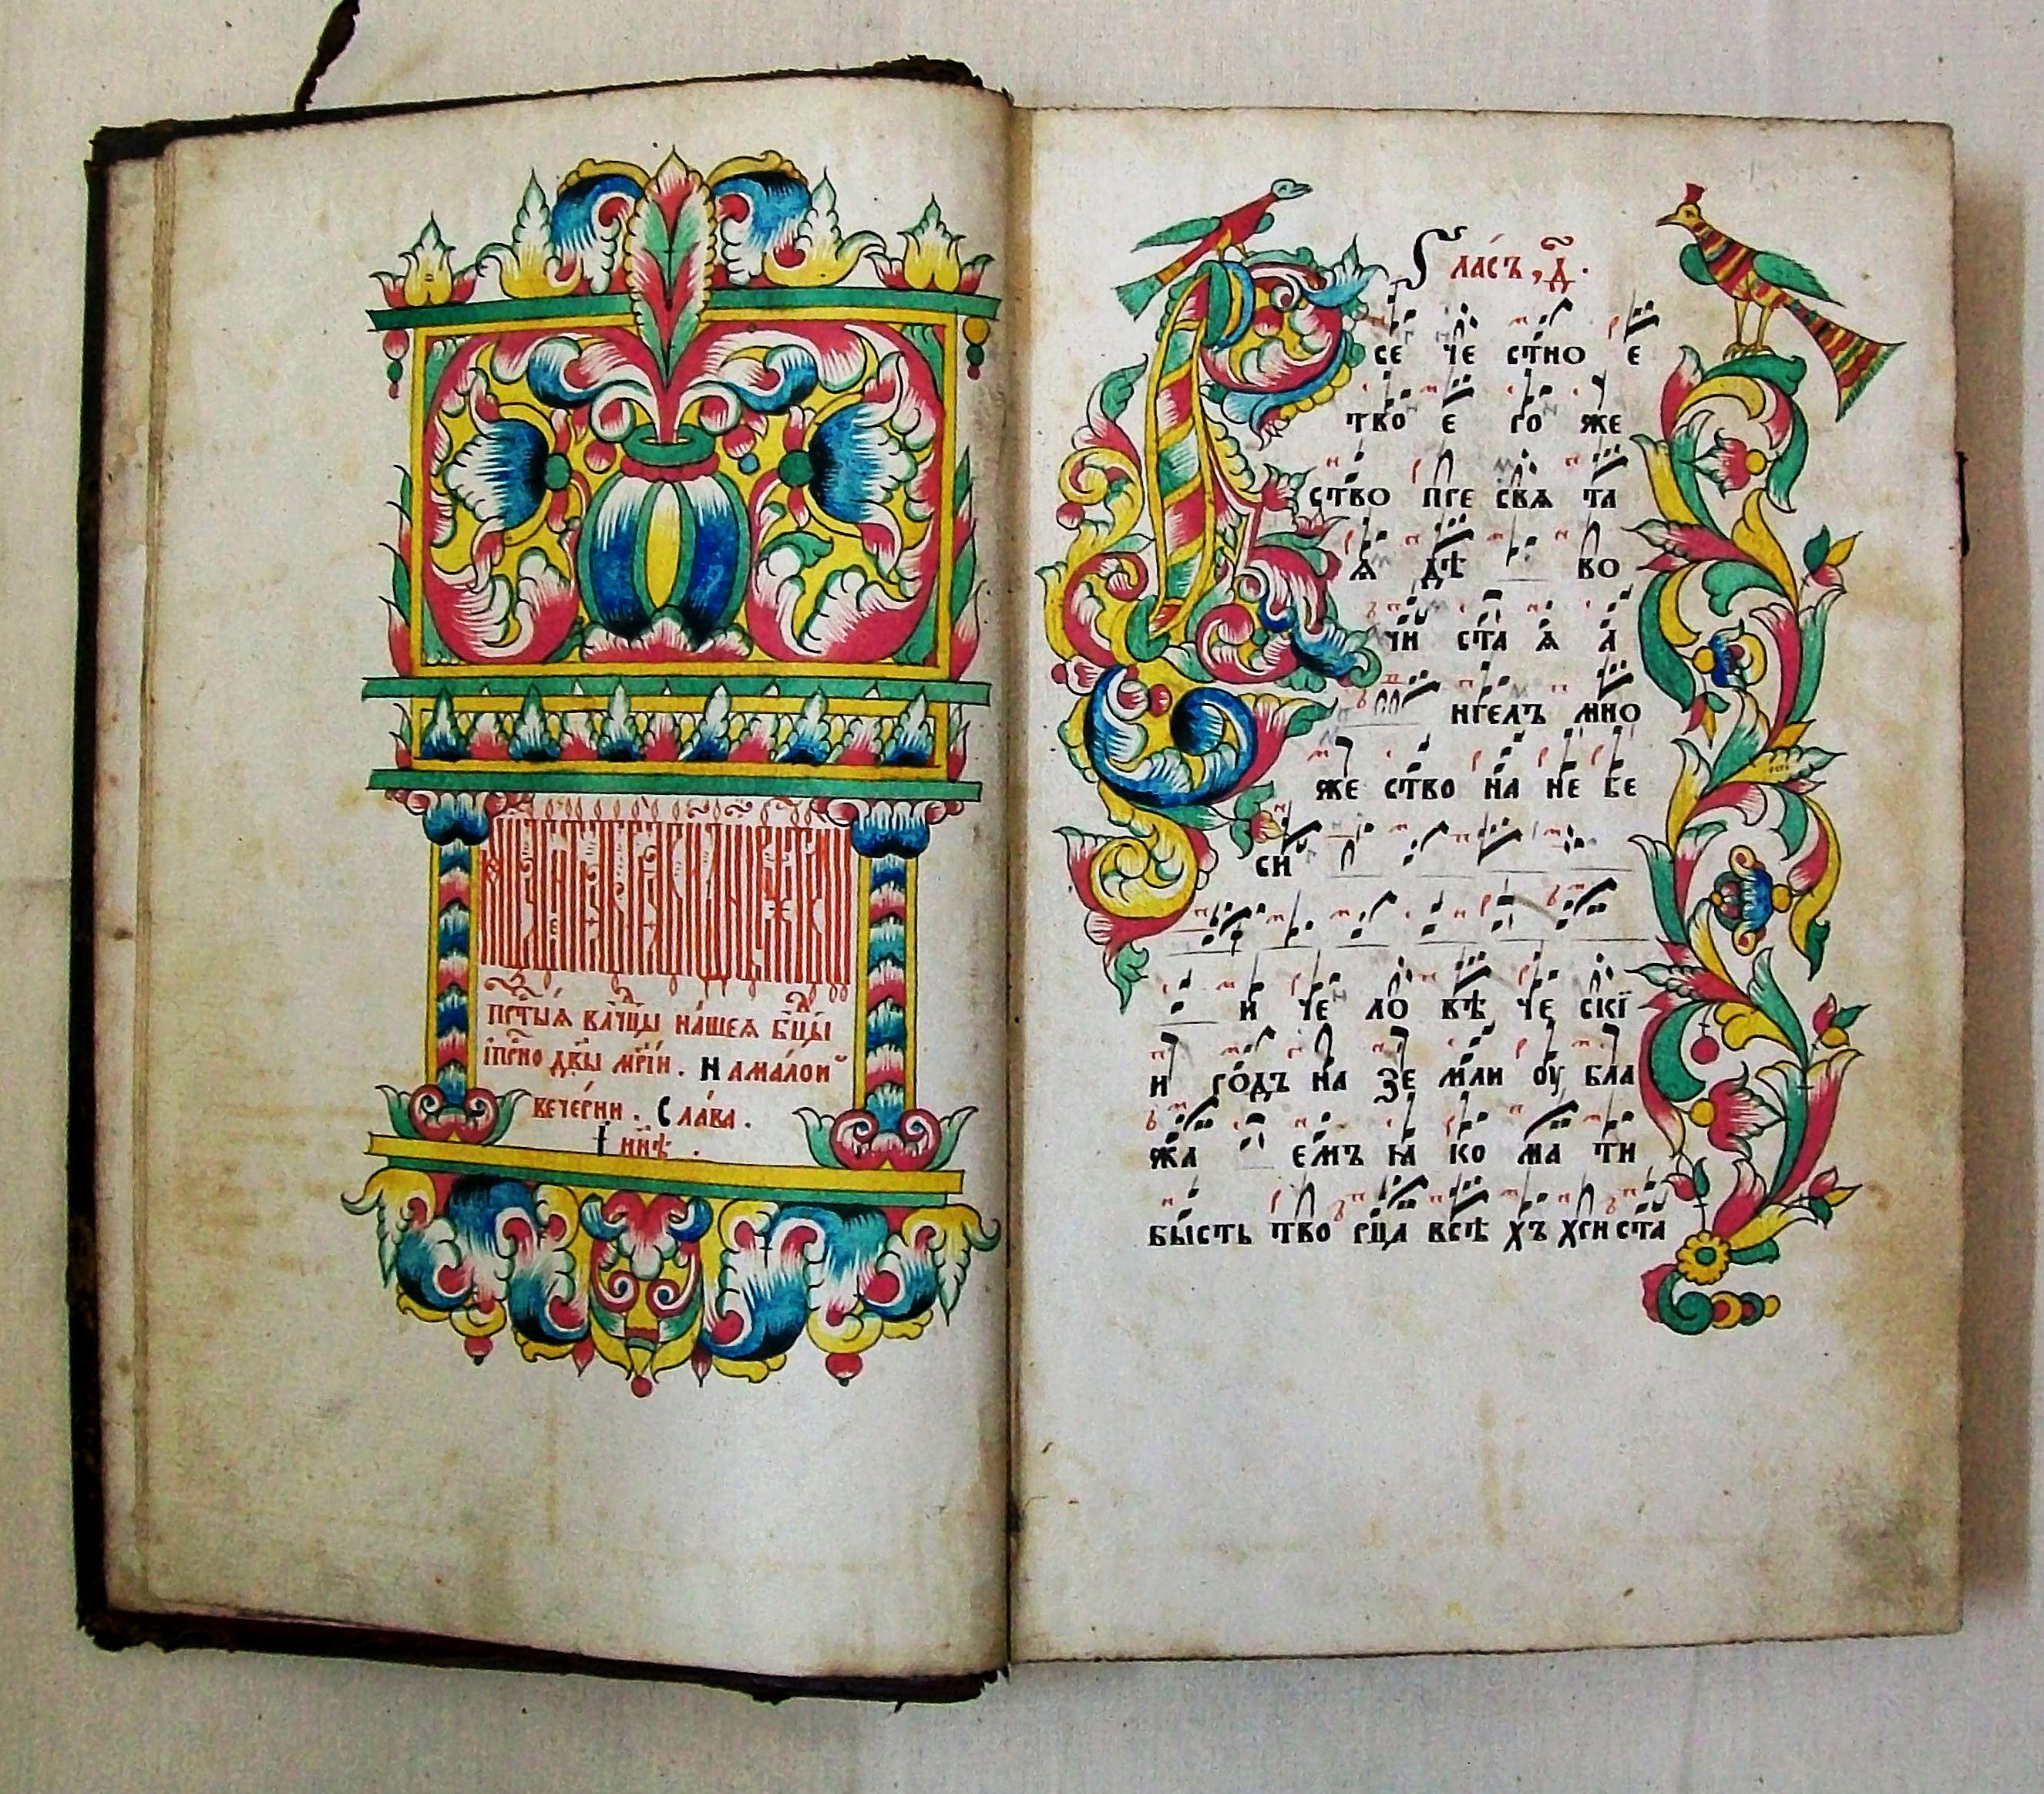 прⷭ҇тыѧ влⷣчцы на́шеѧ бцⷣы
і҆прⷭ҇но дв҃ы мр҃і́и . На ма́лои
вече́рни . Сла́ва .
І҆ ны́нѣ .
Гла́съ , д҃ .
Все че стно е
ство е го же
ство пре свѧ та
ѧ дѣ во
чи ста ѧ а
нгелъ мно
же ство на не бе
си
и че ло вѣ че скїи
и ро́дъ на зе мли оу бла
жа емъ ꙗ ко ма ти
бысть тво рца всѣ хъ хри ста